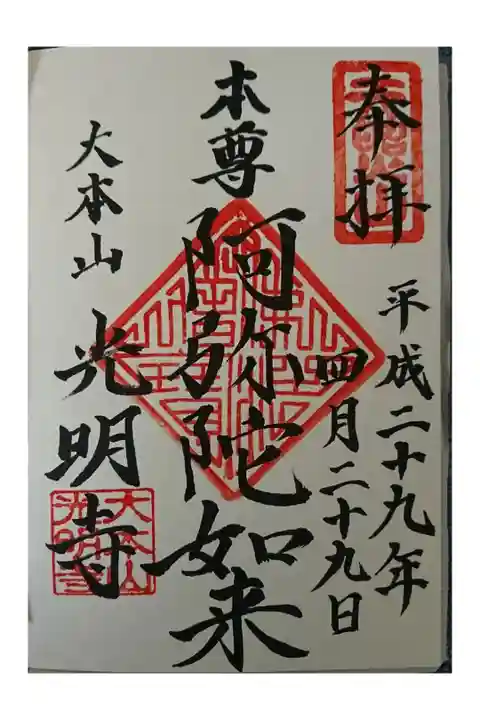 奉拝
平成二十九年
四月二十九日
本尊
阿弥陀如来
大本山
光明寺
大本山
光明寺